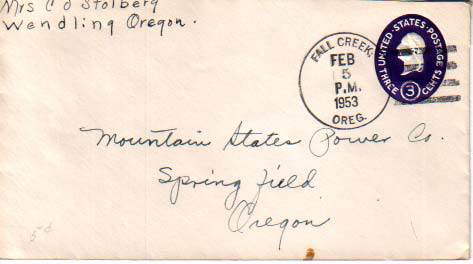 Mrs C O Stolberg
Wendling Oregon.
FALL CREEK,
FEB
5
P.M.
1953
OREG.
UNITED·STATES·POSTAGE
THREE 3 CENTS
Mountain States Power Co.
Springfield
Oregon